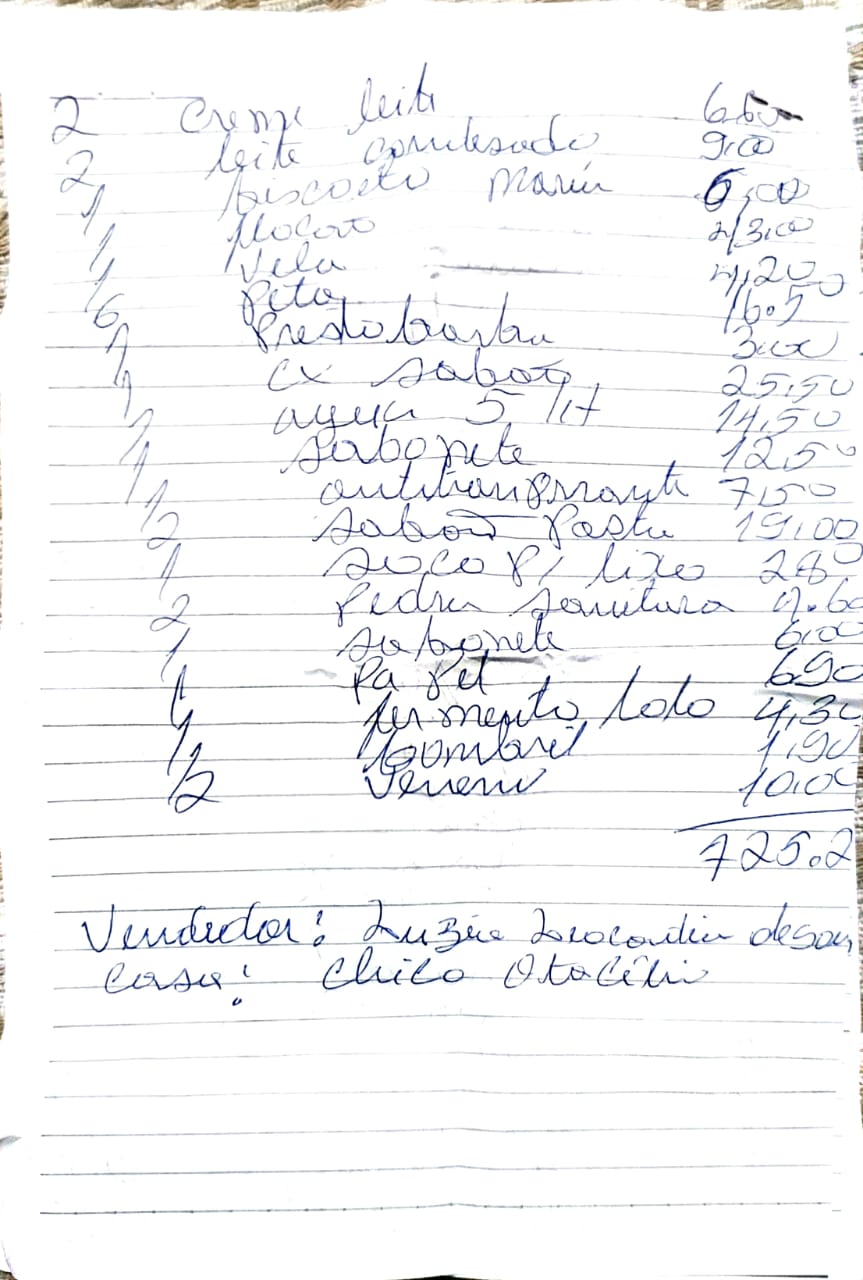 2 creme leite 6.50
2 leite comdesado 9,00
1 biscoito maria 6,00
1 Mocoto 23,00
1 vela 4,20
6 peta 16.5
1 Presto barba 3.00
1 cx sabão 25,50
2 agua 5 lit 14,50
1 sabonete 12,50
1 antitranspirante 7,50
2 sabão Pasta 19,00
1 saco p/ lixo 280
2 Pedra sanitara 9.60
1 sabonete 6,00
1 Papel 690
1 fermento bolo 4,30
1 bombril 1,90
2 veneno 10,00
725.2
Vendedor: Luzia
Casa: Chico Otacilio